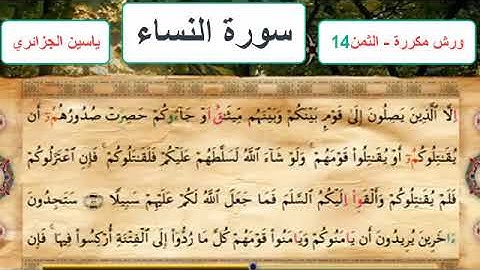 ورش مكررة - الثمن14
سورة النساء
ياسين الجزائري
اِلَّا ٱلَّذِينَ يَصِلُونَ إِلَىٰ قَوْمِۢ بَيْنَكُمْ وَبَيْنَهُم مِّيثَٰقٌ اَوْ جَآءُوكُمْ حَصِرَتْ صُدُورُهُمُۥٓ أَن
يُقَٰتِلُوكُمُۥٓ أَوْ يُقَٰتِلُوا۟ قَوْمَهُمْ وَلَوْ شَآءَ ٱللَّهُ لَسَلَّطَهُمْ عَلَيْكُمْ فَلَقَٰتَلُوكُمْ فَإِنِ ٱعْتَزَلُوكُمْ
فَلَمْ يُقَٰتِلُوكُمْ وَأَلْقَوِا۟ اِلَيْكُمُ ٱلسَّلَمَ فَمَا جَعَلَ ٱللَّهُ لَكُمْ عَلَيْهِمْ سَبِيلًا سَتَجِدُونَ
ءَاخَرِينَ يُرِيدُونَ أَن يَّامَنُوكُمْ وَيَامَنُوا۟ قَوْمَهُمْ كُلَّ مَا رُدُّوٓا۟ إِلَى ٱلْفِتْنَةِ أُرْكِسُوا۟ فِيهَا فَإِن